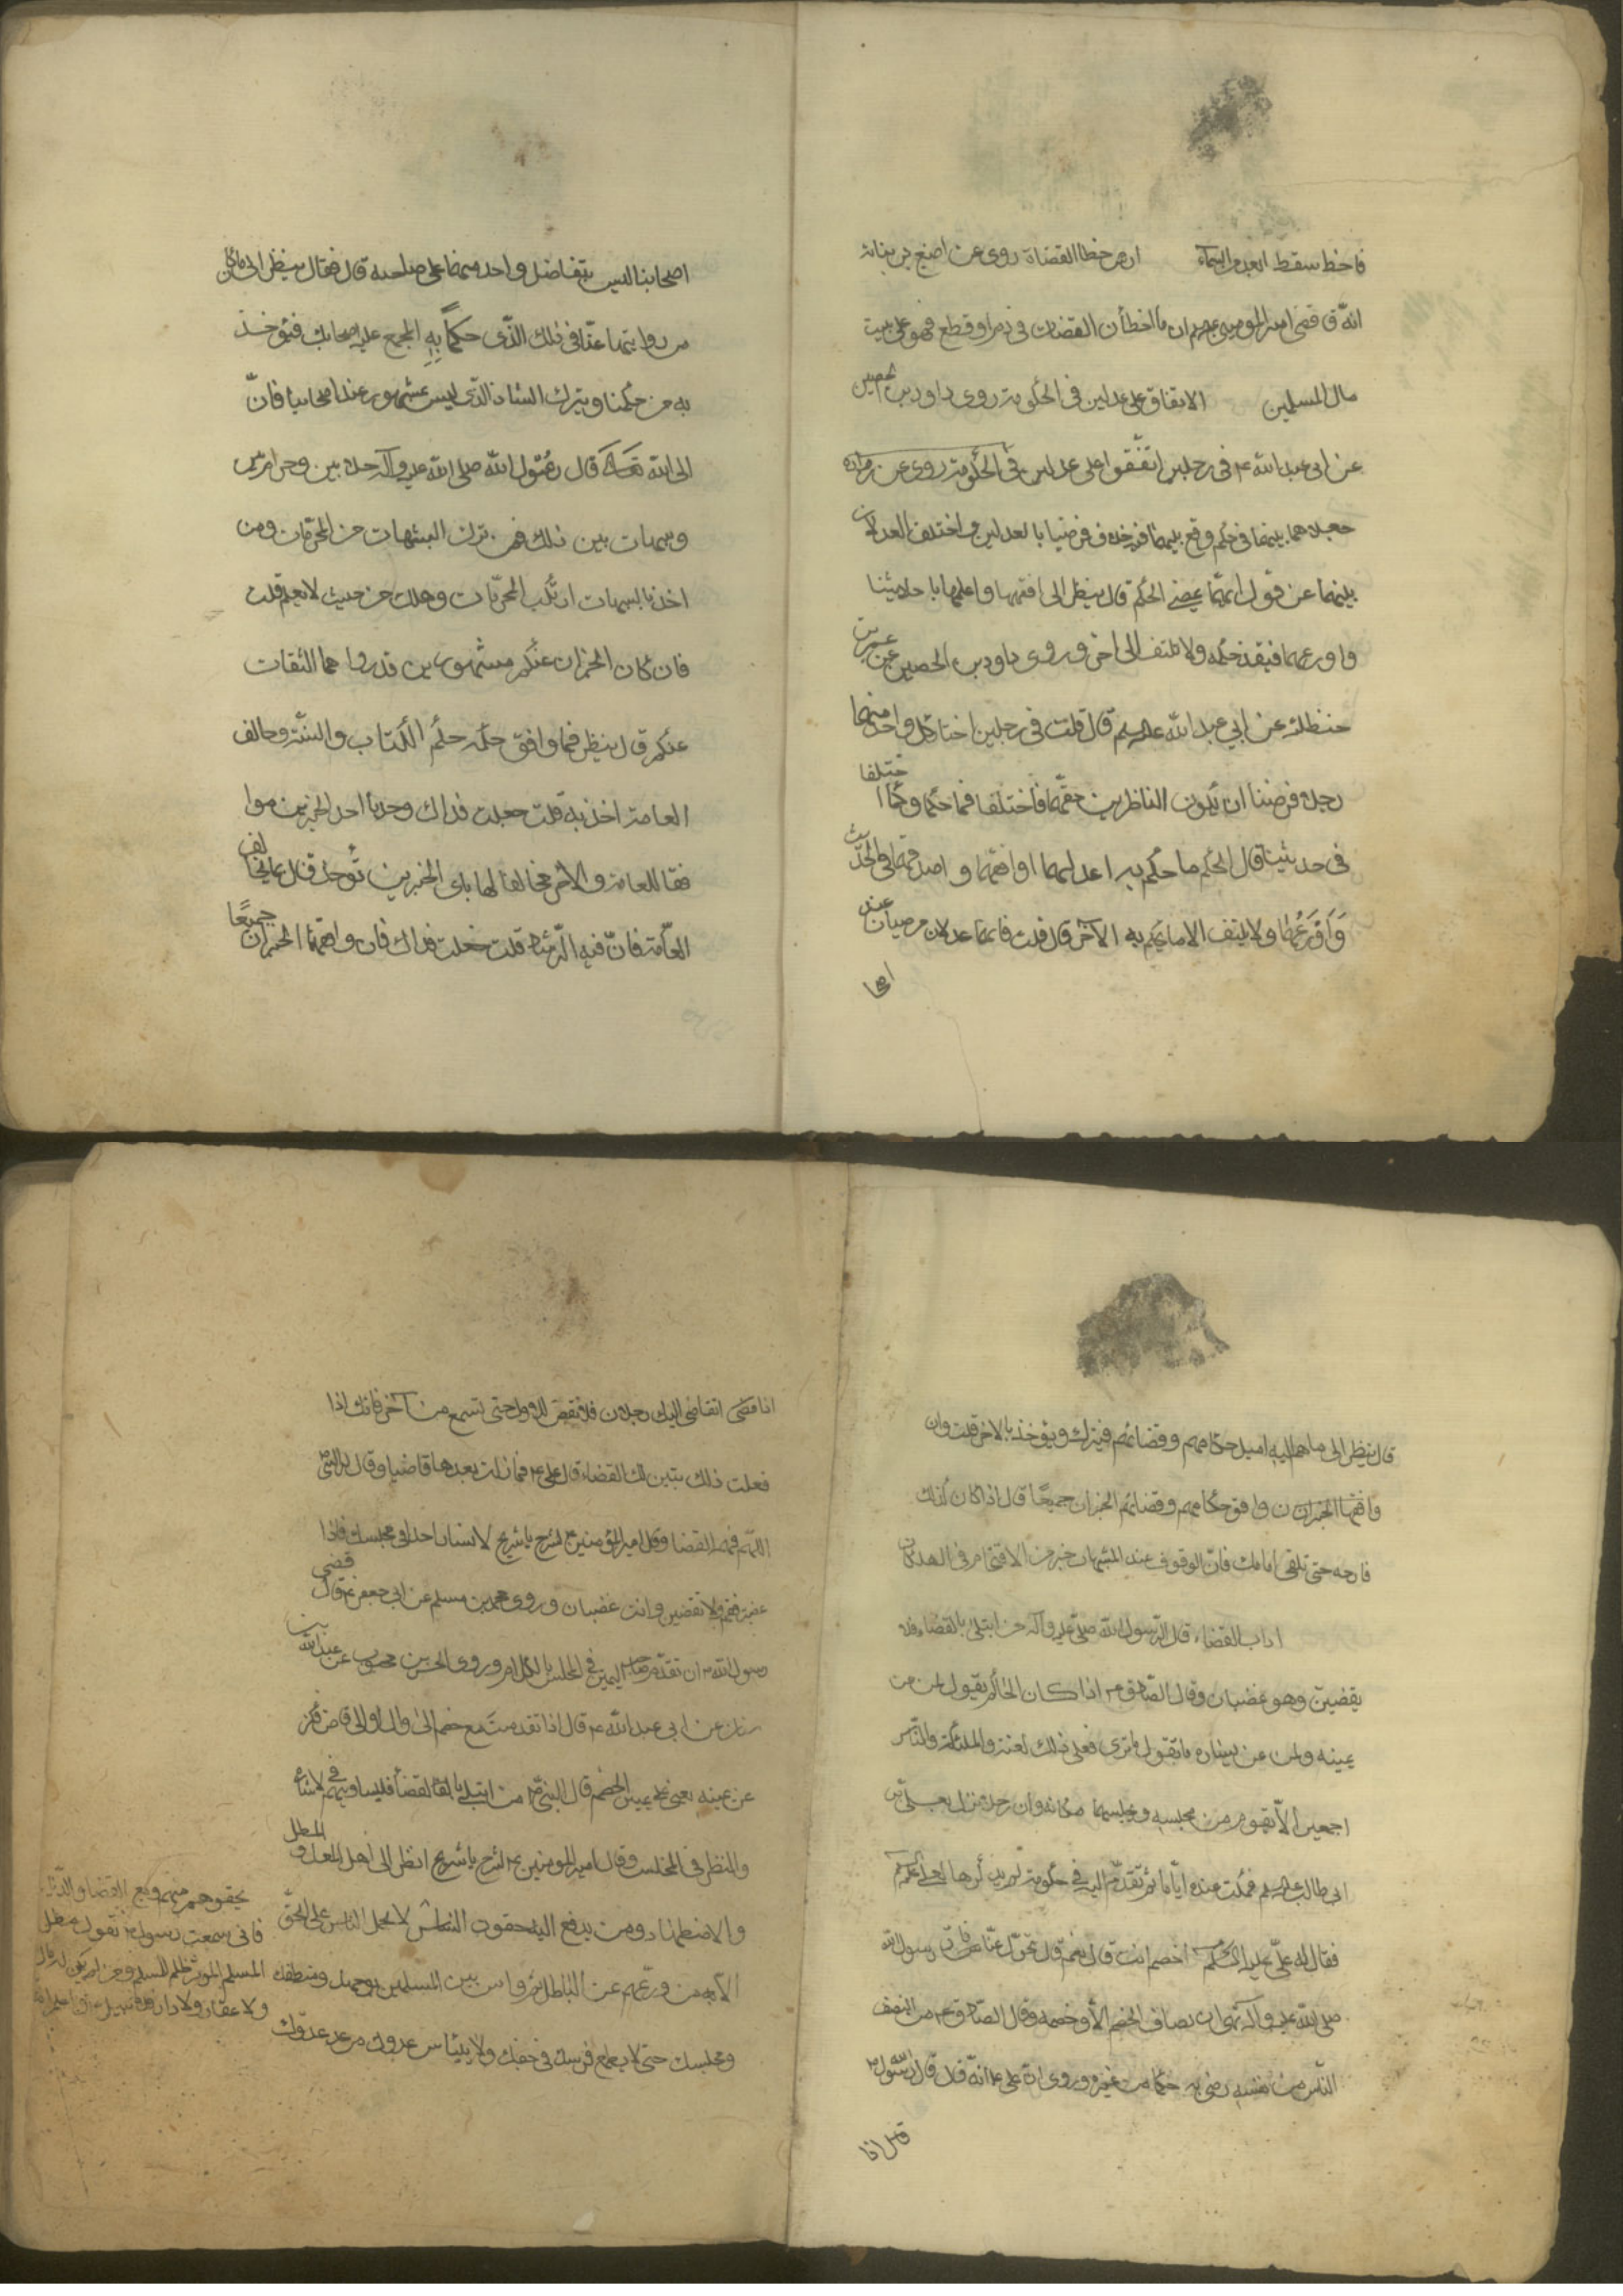 فاخطا سقط ابعد من السماء ارض خطا القضاة روى عن اصبغ بن نباته
انّه ق قضى امير المومنين ع م ان ما اخطأن القضات فى دم او قطع فهو على بيت
مال المسلمين الاتفاق على عدلين فى الحكومة روى داود بن الحصين
عن ابى عبد الله ع فى رجلين اتّفقوا على عدلين فى الحكومة
جعلاهما بينهما فى حكم وقع بينهما فيه خلاف فرضيا بالعدلين و اختلف العدلان
بينهما عن قول ايّهما يمضى الحكم قال ينظر الى افقهها واعلمها باحاديثنا
واورعهما فينفذ حكمه ولا يلتفت الى اخر و روى داود بن الحصين عن عمر بن
حنظلة عن ابي عبد الله عليه السلم قال قلت فى رجلين اختار كل واحد منهما
رجلا فرضينا ان يكون الناظرين حقهما فاختلفا فيما حكما وكلاهما اختلفا
فى حديثنا قال الحكم ما حكم به اعدلهما او افقهما و اصدقهما فى الحديث
وَاَوْرَعُهُما ولا يلتفت الا ما يحكم به الآخر قال قلت فانهما عدلان مرضيان عند
اصحا
اصحابنا ليس يتفاضل واحد منهما على صاحبه قال فقال ينظر الى ما كان
من روايتهما عنّا فى ذلك الذّى حكماً بِهِ المجمع عليه اصحابك فيؤخذ
به من حكمنا ويترك الشاذ الذّى ليس بمشهور عند اصحابنا فانّ
الى الله تعالى قال رسُول الله صلى الله عليه وآله حلال بين وحرام بين
وشبهات بين ذلك فمن ترك الشبهات من المحرّمات ومن
اخذ بالشبهات ارتكب المحرّمات وهلك من حيث لا يعلم قلت
فان كان الخبران عنكم مشهورين قد رواهما الثقات
عنكم قال ينظر فما وافق حكمه حكم الكتاب والسنّة وخالف
العامة اخذ به قلت جعلت فداك وجدنا احد الخبرين موا
فقا للعامة والاخر مخالفا لها باى الخبرين تؤخذ قال بما يخالف
العامّة فانّ فيه الرّشاد قلت جعلت فداك فان وافقهما الخبران جميعًا
قال ينظر الى ما هم اليه اميل حكّامهم وقضاتهم فيترك ويؤخذ بالاخر قلت وان
وافقها الخبران وافق حكامهم وقضاتهم الخبران جميعًا قال اذا كان كذلك
فارجه حتى تلقى امامك فانّ الوقوف عند الشبهات خير من الاقتحام فى الهلكات
اداب القضاء قال الرّسول الله صلى عليه وآله من ابتلى بالقضاء فلا
يقضينّ وهو غضبان وقال الصّادق ع اذا كان الحاكم يقول لمن عن
يمينه ولمن عن يساره ما تقول ما ترى فعلى ذلك لعنة والملئكة والنّاس
اجمعين الّا يقوم من مجلسه ويجلسهما مكانه وان رجلا نزل بعلىّ بن
ابى طالب عليه السلم فمكث عنده ايّاما ثم تقدّم اليه فى حكومة لم يذكرها لعلى ع
فقال له علىّ عليه السلم أخصم انت قال نعم قال تحوّل عنّا فانّ رسول الله
صلى الله عليه وآله نهى ان يضاف الخصم الّا وخصمه وقال الصّادق ع من انصف
النّاس من نفسه رضى به حكما من غيره وروى ان على ع انّه قال قال رسول الله ص
اذا تقاضى اليك رجلان فلا تقض للاول حتى تسمع من آخر فانك اذا
فعلت ذلك يتبين لك القضاء قال على ع فما زلت بعدها قاضيا وقال له النبى ص
اللّهم فهمه القضا وقال امير المؤمنين ع لشريح يا شريح لا تسار احدا فى مجلسك فاذا
غضبت فقم ولا تقضين وانت غضبان وروى محمد بن مسلم عن ابى جعفر ع قال قضى
رسول الله ص ان تقدّم صاحب اليمين فى المجلس بالكلام وروى الحسن بن محبوب عن عبد الله بن
سنان عن ابى عبد الله ع قال اذا تقدمتَ مع خصم الى وال او الى قاض فكن
عن يمينه يعنى على يمين الخصم قال النبى ص من ابتلى بالقضاء فليساو بينهم فى الاشارة
والنظر فى المجلس وقال امير المومنين ع لشريح يا شريح انظر الى اهل المعل و المطل
والاضطهاد ومن يدفع اليه حقوق الناس لا يحمل الناس على الحقّ
الّا من ورعهم عن الباطل ثم واس بين المسلمين بوجهك ومنطقك
ومجلسك حتى لا يطمع قريبك فى حيفك ولا ييئاس عدوك من عدلك
فانى سمعت رسول ص يقول مطل
المسلم الموسر ظلم للمسلم ومن لم يكن له مال
ولا عقار ولا دار فلا سبيل عليه واعلم انه